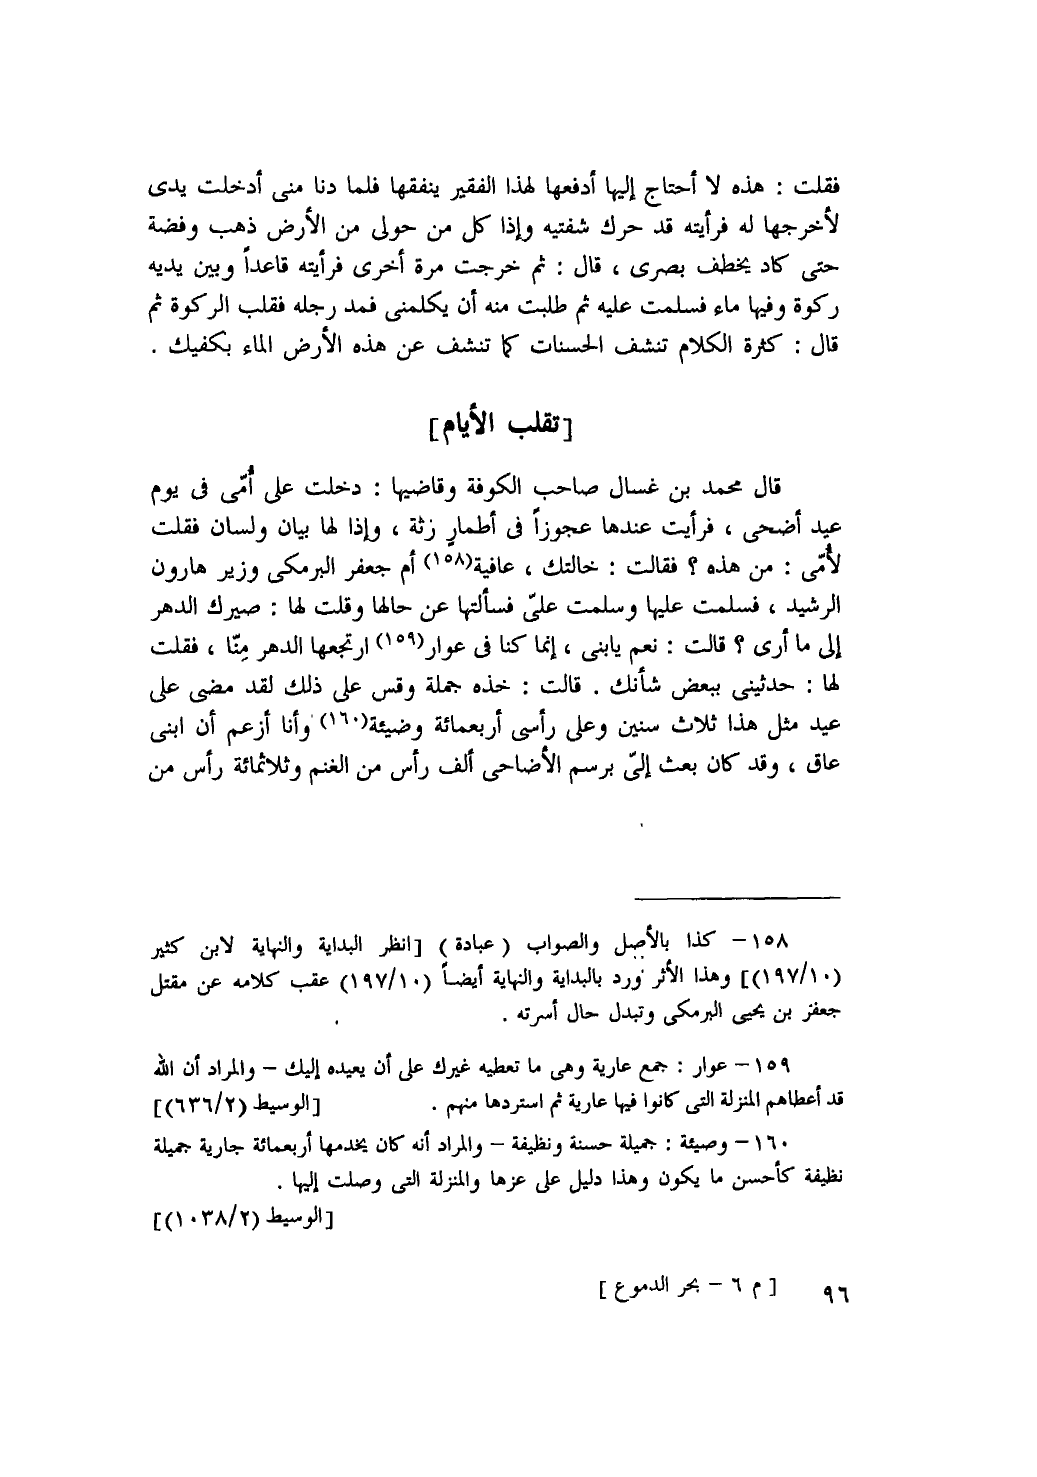 فقلت : هذه لا أحتاج إليها أدفعها لهذا الفقير ينفقها فلما دنا منى أدخلت يدى
لأخرجها له فرأيته قد حرك شفتيه وإذا كل من حولى من الأرض ذهب وفضة
حتى كاد يخطف بصرى ، قال : ثم خرجت مرة أخرى فرأيته قاعداً وبين يديه
ركوة وفيها ماء فسلمت عليه ثم طلبت منه أن يكلمنى فمد رجله فقلب الركوة ثم
قال : كثرة الكلام تنشف الحسنات كما تنشف عن هذه الأرض الماء بكفيك .
[تقلب الأيام]
قال محمد بن غسال صاحب الكوفة وقاضيها : دخلت على أُمّى فى يوم
عيد أضحى ، فرأيت عندها عجوزاً فى أطمارٍ رثة ، وإذا لها بيان ولسان فقلت
لأُمّى : من هذه ؟ فقالت : خالتك ، عافية(١٥٨) أم جعفر البرمكى وزير هارون
الرشيد ، فسلمت عليها وسلمت علىّ فسألتها عن حالها وقلت لها : صيرك الدهر
إلى ما أرى ؟ قالت : نعم يابنى ، إنما كنا فى عوار(١٥٩) ارتجعها الدهر مِنّا ، فقلت
لها : حدثينى ببعض شأنك . قالت : خذه جملة وقس على ذلك لقد مضى على
عيد مثل هذا ثلاث سنين وعلى رأسى أربعمائة وضيئة(١٦٠) وأنا أزعم أن ابنى
عاق ، وقد كان بعث إلىّ برسم الأضاحى ألف رأس من الغنم وثلاثمائة رأس من
١٥٨- كذا بالأصل والصواب ( عبادة ) [انظر البداية والنهاية لابن كثير
(١٩٧/١٠)] وهذا الأثر ورد بالبداية والنهاية أيضاً (١٩٧/١٠) عقب كلامه عن مقتل
جعفر بن يحيى البرمكى وتبدل حال أسرته .
١٥٩- عوار : جمع عارية وهى ما تعطيه غيرك على أن يعيده إليك – والمراد أن الله
قد أعطاهم المنزلة التى كانوا فيها عارية ثم استردها منهم . [الوسيط (٦٣٦/٢)]
١٦٠- وضيئة : جميلة حسنة ونظيفة – والمراد أنه كان يخدمها أربعمائة جارية جميلة
نظيفة كأحسن ما يكون وهذا دليل على عزها والمنزلة التى وصلت إليها .
[الوسيط (١٠٣٨/٢)]
٩٦ [ م ٦ – بحر الدموع ]